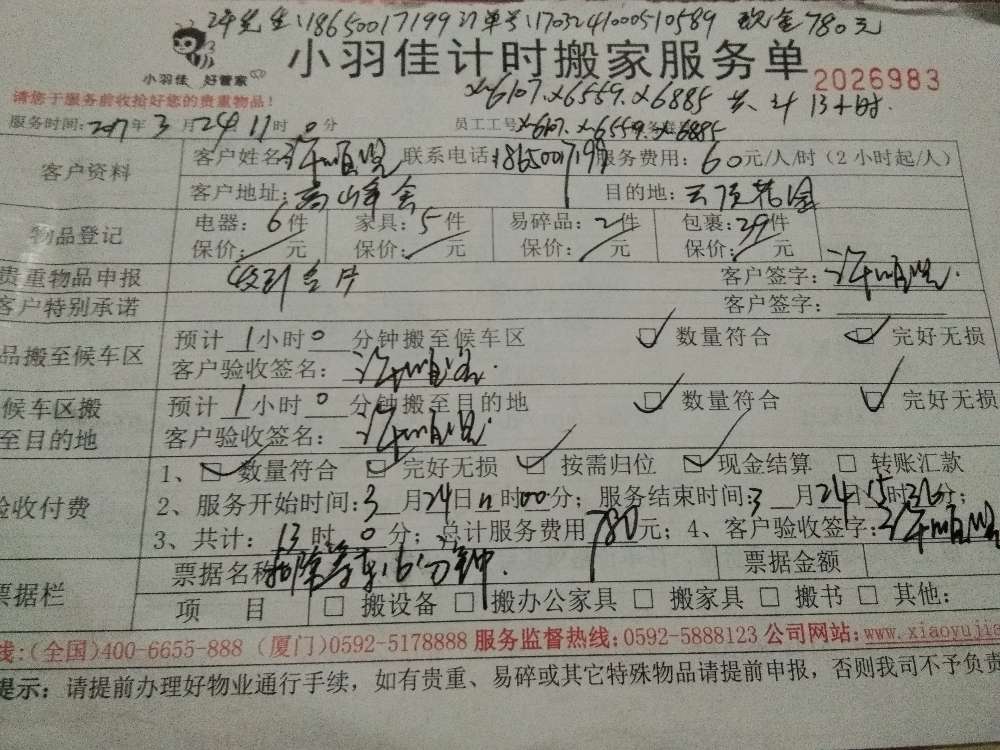 许先生:18650017199 订单号:1703241000510589 现金780元
小羽佳计时搬家服务单
小羽佳 好管家
2026983
请您于服务前收拾好您的贵重物品!
X-6107.X6559.X6885 共: 计13小时.
服务时间:2017年3月24日11时0分 员工工号 X-6107.X-6559.X-6885
客户资料
客户姓名: 联系电话:18650017199 服务费用:60元/人/时(2小时起/人)
客户地址:高山峰会 目的地:云顶花园
物品登记
电器:6件 家具:5件 易碎品:2件 包裹:29件
保价: 元 保价: 元 保价: 元 保价: 元
贵重物品申报 客户签字:
客户特别承诺 客户签字:
品搬至候车区
预计1小时0分钟搬至候车区 数量符合 完好无损
客户验收签名:
候车区搬至目的地
预计1小时0分钟搬至目的地 数量符合 完好无损
客户验收签名:
验收付费
1、数量符合 完好无损 按需归位 现金结算 转账汇款
2、服务开始时间:3月24日11时00分;服务结束时间:3月24日15时36分;
3、共计:13时0分;总计服务费用780元;4、客户验收签字:
票据栏
票据名称 扣除等车16分钟. 票据金额
项 目 搬设备 搬办公家具 搬家具 搬书 其他:
线:(全国)400-6655-888 (厦门)0592-5178888 服务监督热线:0592-5888123 公司网站:www.xiaoyujia
提示:请提前办理好物业通行手续,如有贵重、易碎或其它特殊物品请提前申报,否则我司不予负责